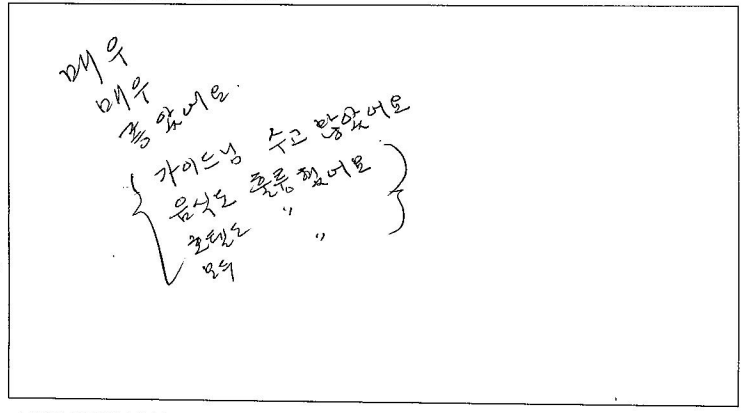 매우
매우
좋았어요.
가이드님 수고 많았어요
음식도 훌륭했어요
호텔도 "
모두 "